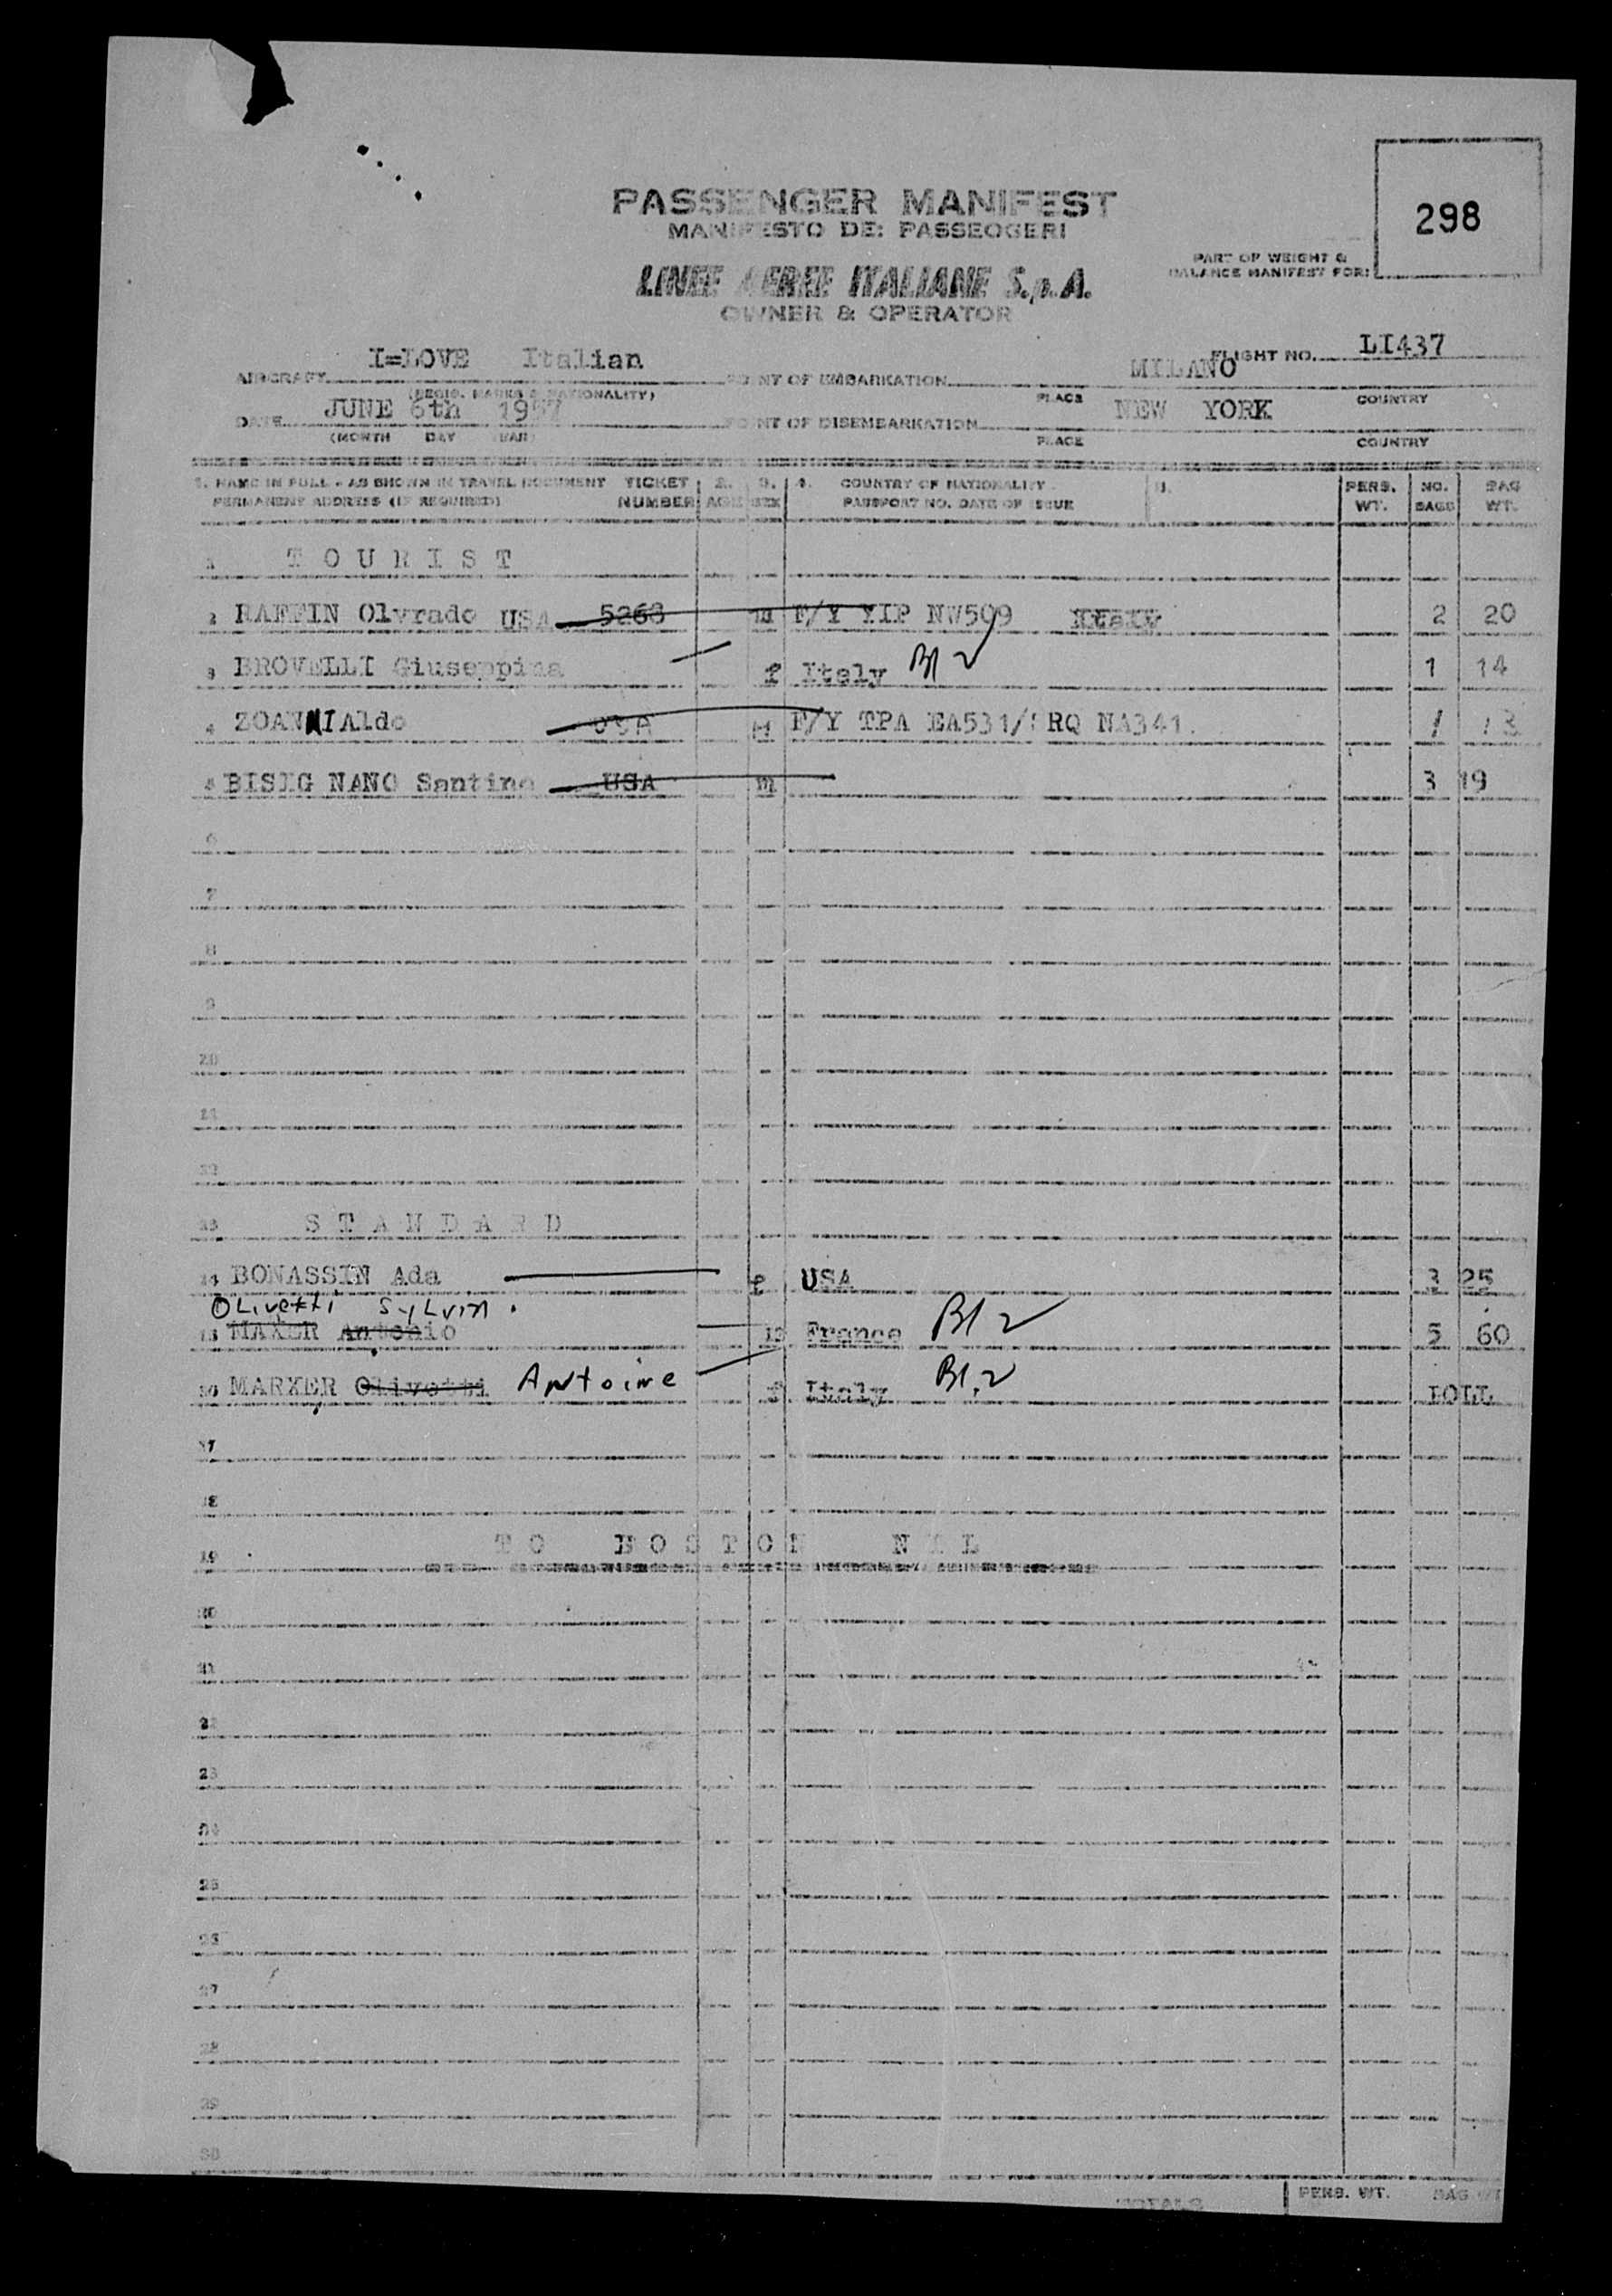 PASSENGER MANIFEST
MANIFESTO DEI PASSEGGERI
298
PART OF WEIGHT &
BALANCE MANIFEST FOR:
LINEE AEREE ITALIANE S.p.A.
OWNER & OPERATOR
AIRCRAFT I=LOVE Italian POINT OF EMBARKATION MILANO FLIGHT NO. LI437
(REGIS. MARKS & NATIONALITY) PLACE COUNTRY
DATE JUNE 6th 1957 POINT OF DISEMBARKATION NEW YORK
(MONTH DAY YEAR) PLACE COUNTRY
1. NAME IN FULL - AS SHOWN IN TRAVEL DOCUMENT TICKET 2. 3. 4. COUNTRY OF NATIONALITY 5. PERS. NO. BAG
PERMANENT ADDRESS (IF REQUIRED) NUMBER AGE SEX PASSPORT NO. DATE OF ISSUE WT. BAGS WT.
1 TOURIST
2 RAFFIN Olvrado USA 5268 m F/Y YIP NW509 Italy 2 20
3 BROVELLI Giuseppina f Italy Bl 2 1 14
4 ZOANNI Aldo USA M F/Y TPA EA531/ RQ NA341. 1 13
5 BISIG NANO Santino USA m 3 19
6
7
8
9
10
11
12
13 STANDARD
14 BONASSIN Ada f USA 3 25
OLivetti SyLvia.
15 MAXER Antonio m France Bl 2 5 60
16 MARXER Olivetti Antoine f Italy Bl.2
17
18
19 TO BOSTON NIL
20
21
22
23
24
25
26
27
28
29
30
TOTALS PERS. WT. BAG WT